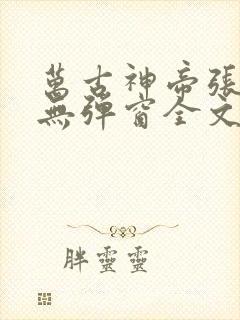 萬古神帝張
無彈窗全文
胖靈靈